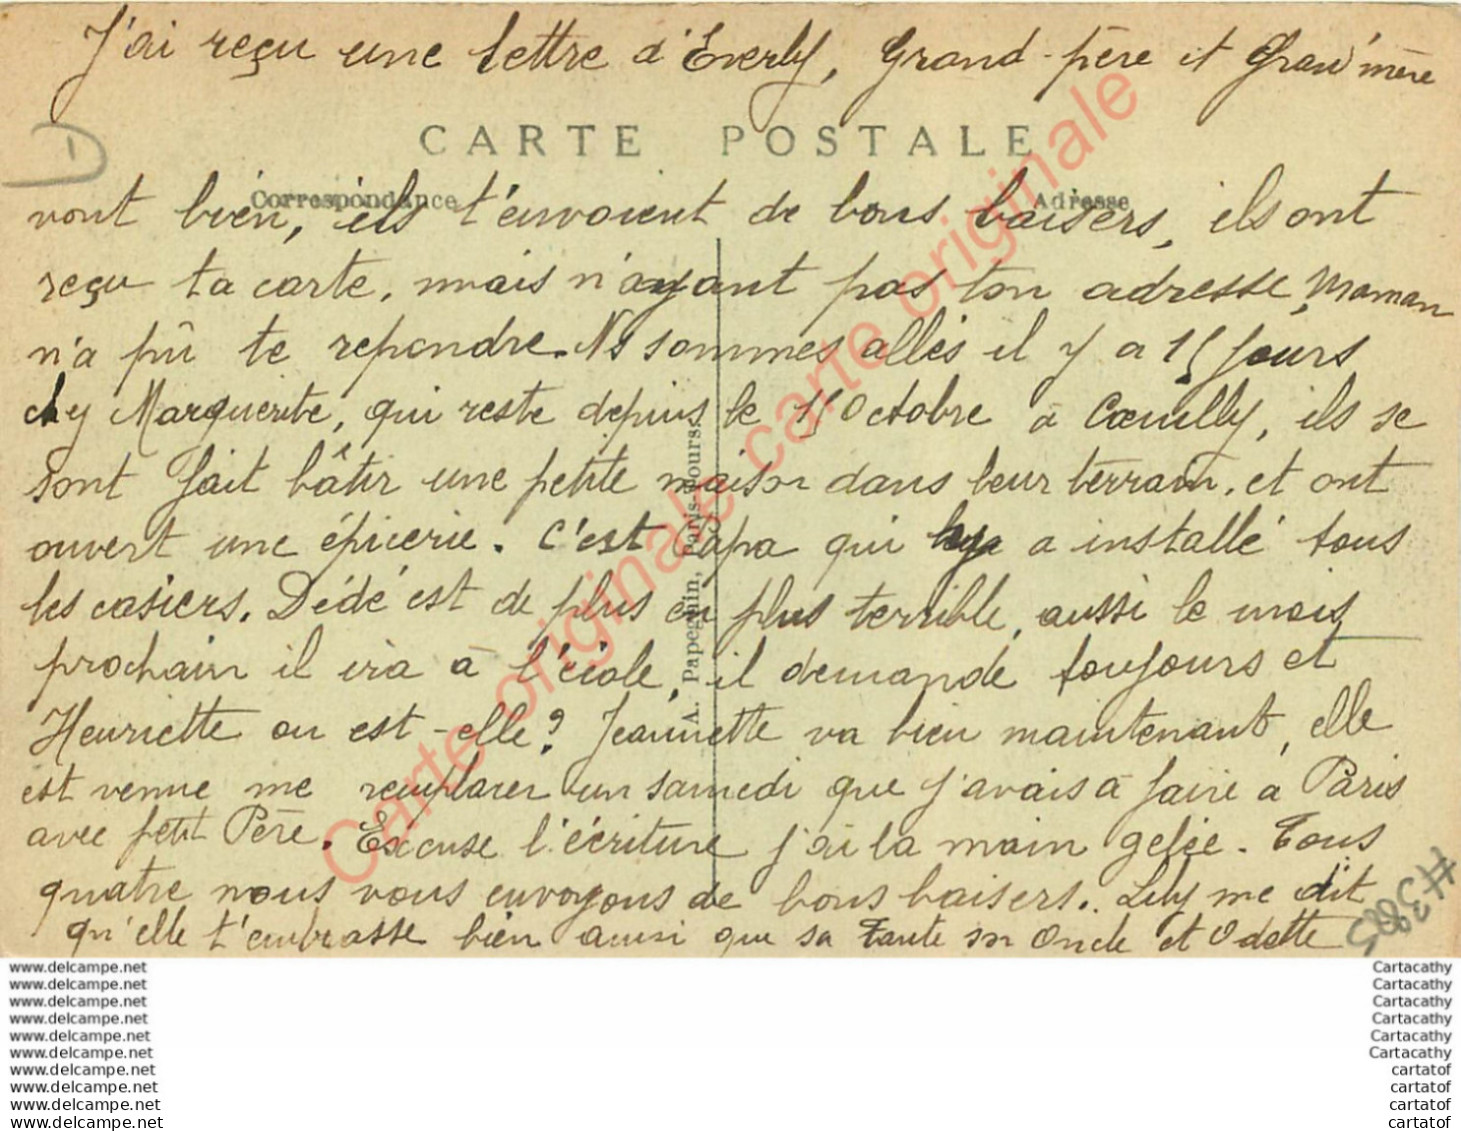 J'ai reçu une lettre d'Everly, Grand-père et Grand'mère
CARTE POSTALE
Correspondance
Adresse
vont bien, ils t'envoient de bons baisers, ils ont
reçu ta carte, mais n'ayant pas ton adresse, Maman
n'a pû te repondre. Ns sommes allés il y a 15 jours
chez Marguerite, qui reste depuis le 15 Octobre à Cœuilly, ils se
sont fait bâtir une petite maison dans leur terrain, et ont
ouvert une épicerie. C'est Papa qui a installé tous
les casiers. Dédé est de plus en plus terrible, aussi le mois
prochain il ira à l'école, il demande toujours et
Henriette ou est-elle? Jeannette va bien maintenant, elle
est venue me remplacer un samedi que j'avais à faire à Paris
avec petit Père. Excuse l'écriture j'ai la main gelée. Tous
quatre nous vous envoyons de bons baisers. Lily me dit
qu'elle t'embrasse bien ainsi que sa Tante son Oncle et Odette
A. Papeghin, Paris-Tours.
Carte originale carte originale
H3885
www.delcampe.net
www.delcampe.net
www.delcampe.net
www.delcampe.net
www.delcampe.net
www.delcampe.net
www.delcampe.net
www.delcampe.net
www.delcampe.net
www.delcampe.net
Cartacathy
Cartacathy
Cartacathy
Cartacathy
Cartacathy
Cartacathy
cartatof
cartatof
cartatof
cartatof